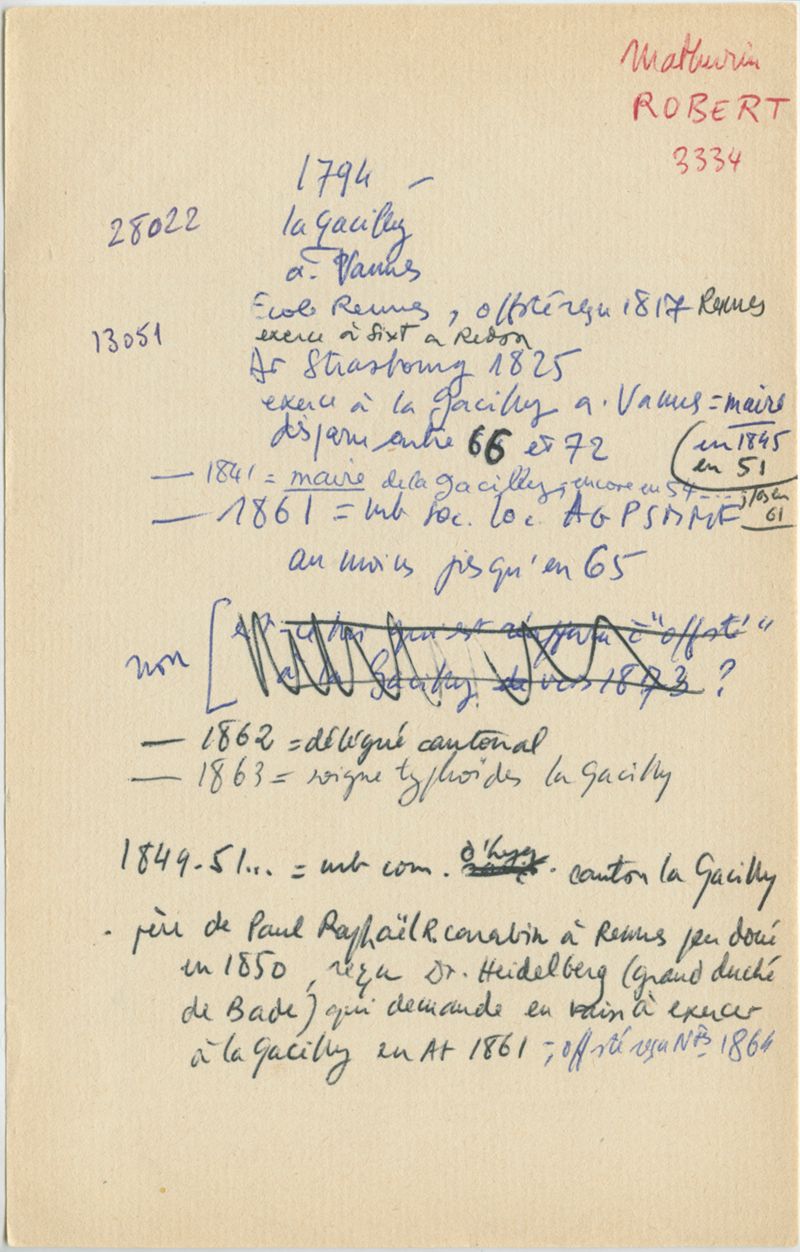 Mathurin
ROBERT
3334
1794 –
28022
la Gacilly
a. Vannes
Ecole Rennes, offsté reçu 1817 Rennes
13051
exerce à Sixt a Redon
Dr Strasbourg 1825
exerce à la Gacilly a. Vannes = maire
(en 1845
en 51
disparu entre 66 et 72
— 1841 = maire de la Gacilly, encore en 54 ---
plus en
61
— 1861 = mb soc. loc. AGPSMMF
au moins jusqu'en 65
non [est-ce lui qui est réapparu à "offsté"
à la Gacilly vers 1873 ?
— 1862 = délégué cantonal
— 1863 = soigne typhoïdes la Gacilly
1849-51... = mb com. d'hyg. canton la Gacilly
. père de Paul Raphaël R. carabin à Rennes peu doué
en 1850, reçu Dr. Heidelberg (grand duché
de Bade) qui demande en vain à exercer
à la Gacilly en At 1861 -, offsté reçu Nts 1864